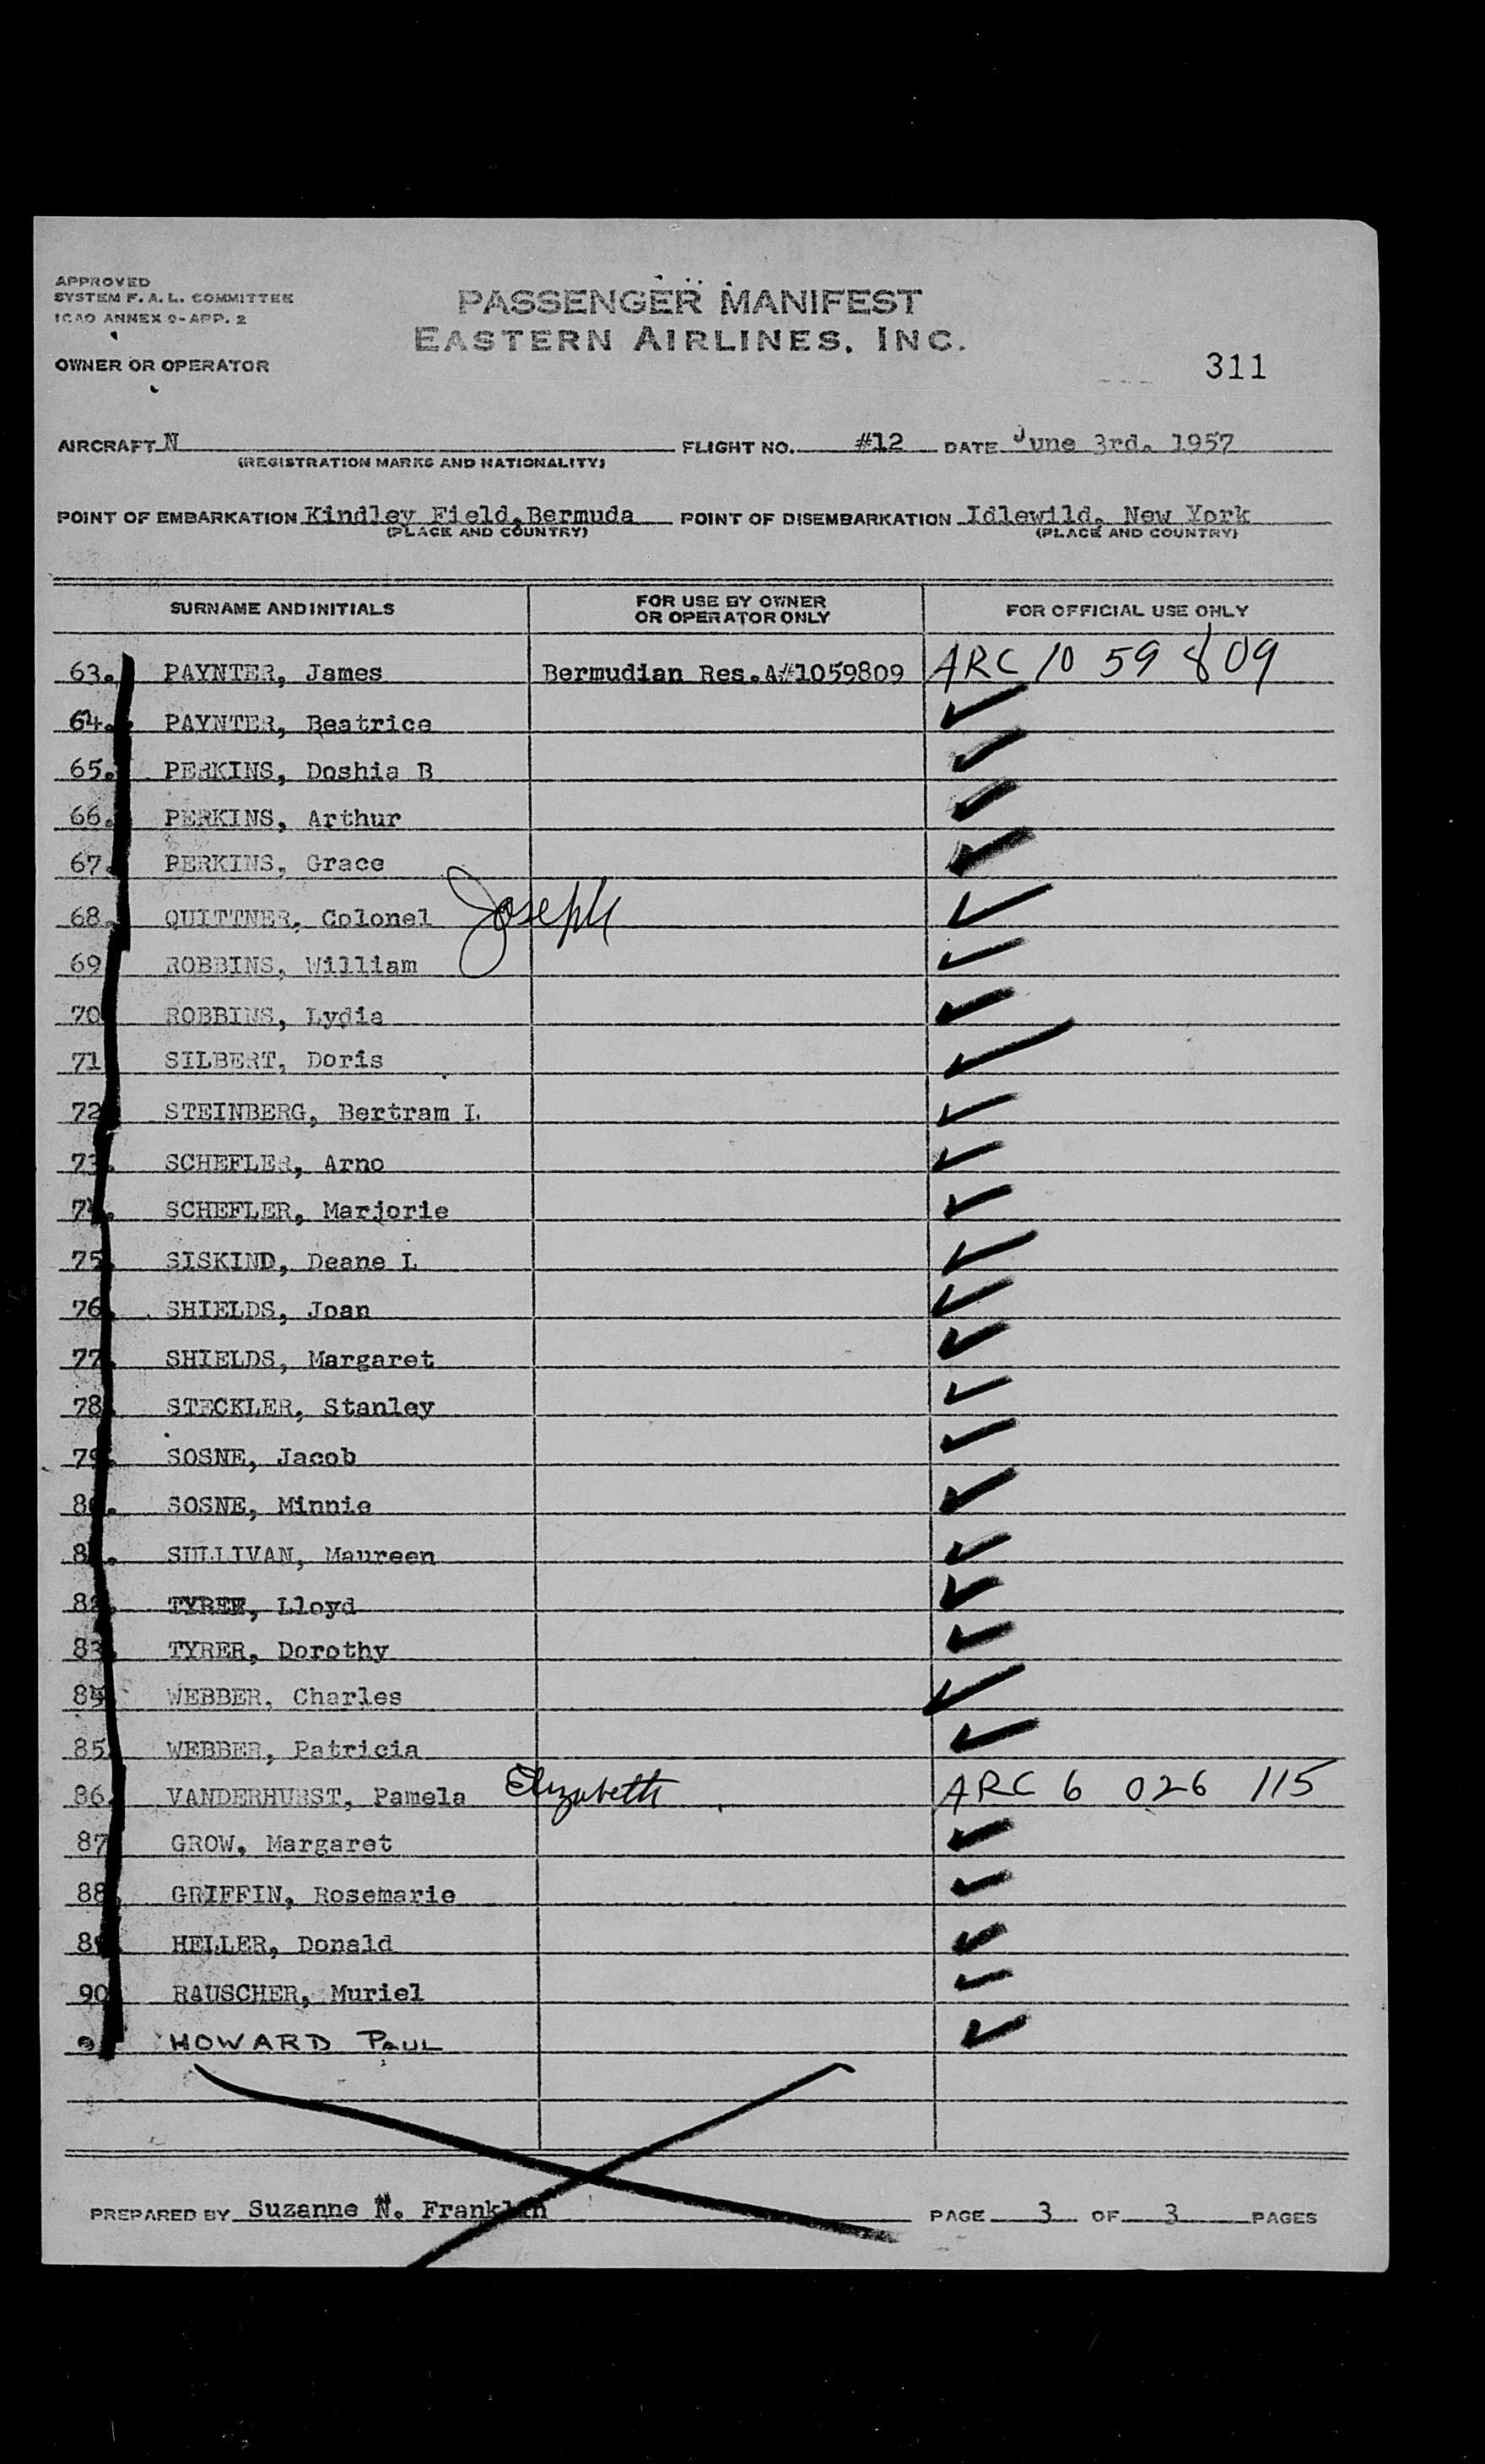 APPROVED
SYSTEM F. A. L. COMMITTEE
ICAO ANNEX 9-APP. 2
PASSENGER MANIFEST
EASTERN AIRLINES, INC.
OWNER OR OPERATOR
311
AIRCRAFT N FLIGHT NO. #12 DATE June 3rd. 1957
(REGISTRATION MARKS AND NATIONALITY)
POINT OF EMBARKATION Kindley Field, Bermuda POINT OF DISEMBARKATION Idlewild, New York
(PLACE AND COUNTRY) (PLACE AND COUNTRY)
SURNAME AND INITIALS FOR USE BY OWNER OR OPERATOR ONLY FOR OFFICIAL USE ONLY
63. PAYNTER, James Bermudian Res.A#1059809 ARC 10 59 809
64. PAYNTER, Beatrice ✓
65. PERKINS, Doshia B ✓
66. PERKINS, Arthur ✓
67. PERKINS, Grace ✓
68. QUITTNER, Colonel Joseph ✓
69 ROBBINS, William ✓
70 ROBBINS, Lydia ✓
71 SILBERT, Doris ✓
72 STEINBERG, Bertram L ✓
73. SCHEFLER, Arno ✓
74. SCHEFLER, Marjorie ✓
75. SISKIND, Deane L ✓
76. SHIELDS, Joan ✓
77. SHIELDS, Margaret ✓
78. STECKLER, Stanley ✓
79. SOSNE, Jacob ✓
80. SOSNE, Minnie ✓
81. SULLIVAN, Maureen ✓
82. TYRER, Lloyd ✓
83. TYRER, Dorothy ✓
84 WEBBER, Charles ✓
85 WEBBER, Patricia ✓
86. VANDERHURST, Pamela Elizabeth ARC 6 026 115
87 GROW, Margaret ✓
88. GRIFFIN, Rosemarie ✓
89 HELLER, Donald ✓
90 RAUSCHER, Muriel ✓
HOWARD PAUL ✓
PREPARED BY Suzanne N. Franklin PAGE 3 OF 3 PAGES